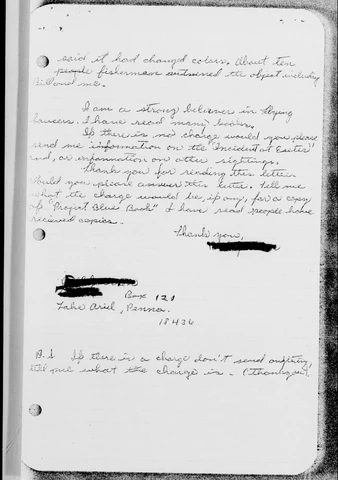 said it had changed colors. About ten
people fisherman witnessed the object including
Bill and me.
I am a strong believer in flying
saucers. I have read many books.
If there is no charge would you please
send me information on the "Incident at Exeter"
and, or information on other sightings.
Thank you for reading this letter.
Would you please answer this letter. Tell me
what the charge would be, if any, for a copy
of "Project Blue Book" I have read people have
recieved copies.
Thank you,
Box 121
Lake Ariel, Penna.
18436
P.S. If there is a charge don't send anything,
tell me what the charge is. (Thank you).